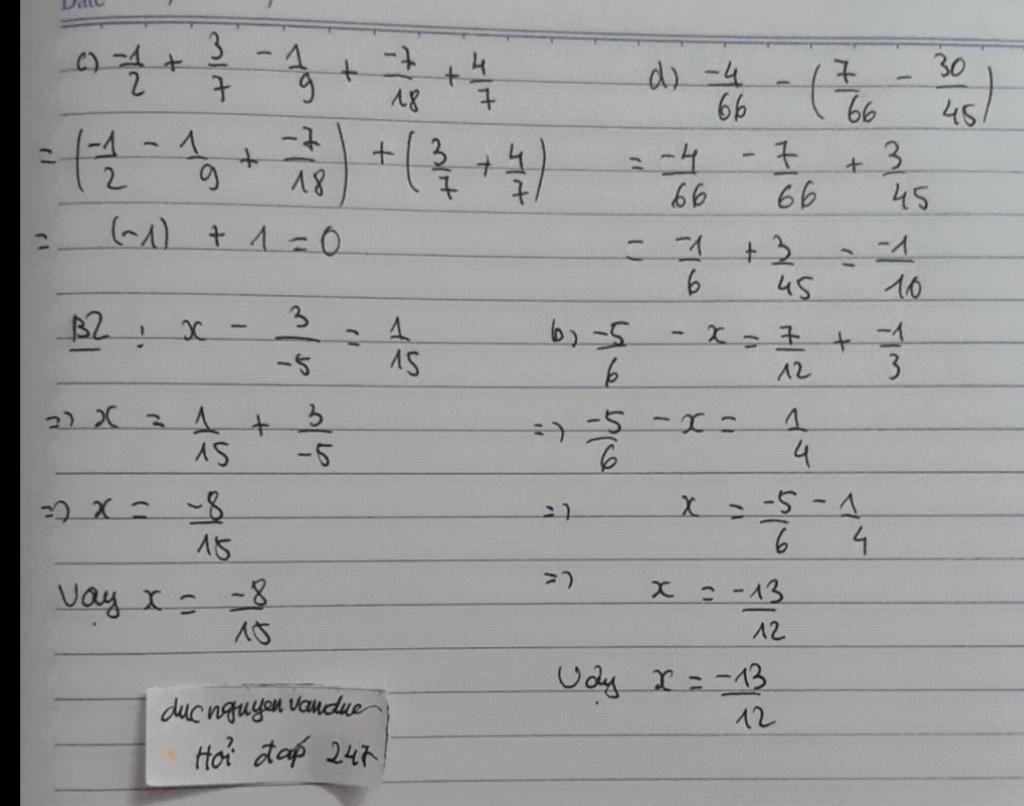 Date
c) -1/2 + 3/7 - 1/9 + -7/18 + 4/7
= (-1/2 - 1/9 + -7/18) + (3/7 + 4/7)
= (-1) + 1 = 0
d) -4/66 - (7/66 - 30/45)
= -4/66 - 7/66 + 3/45
= -1/6 + 3/45 = -1/10
B2 : x - 3/-5 = 1/15
=> x = 1/15 + 3/-5
=> x = -8/15
Vậy x = -8/15
b) -5/6 - x = 7/12 + -1/3
=> -5/6 - x = 1/4
=> x = -5/6 - 1/4
=> x = -13/12
Vậy x = -13/12
ducnguyenvanduc
Hỏi đáp 247